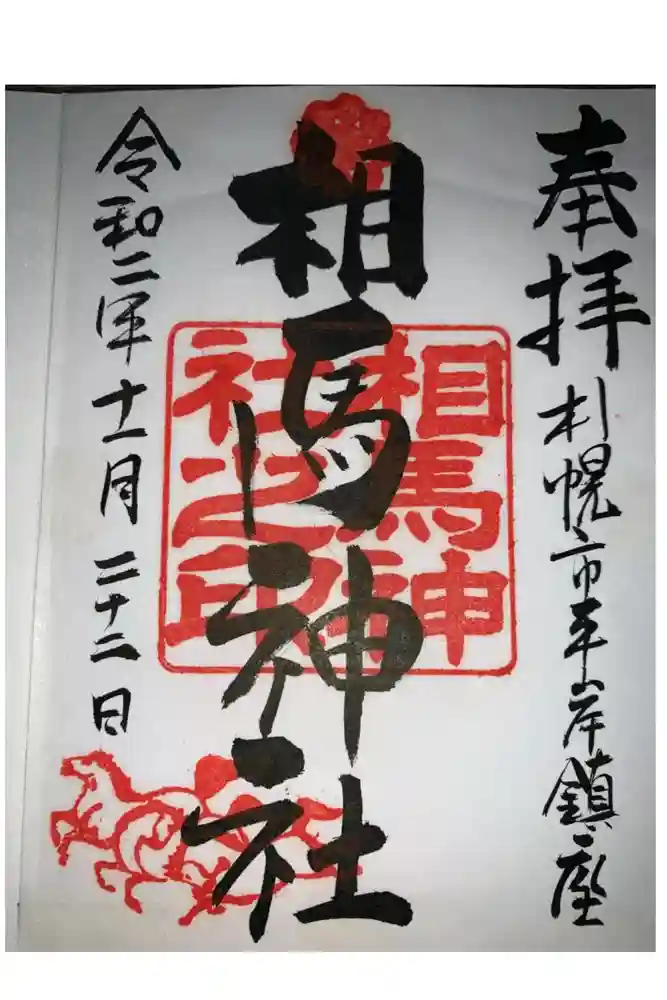 奉拝
札幌市平岸鎮座
相馬神社
相馬神
社之印
令和二年十一月二十二日